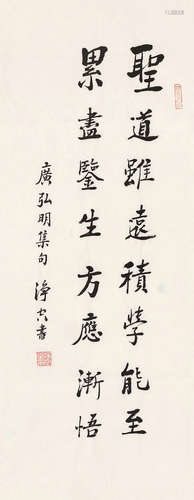 聖道雖遠積學能至
累盡鑒生方應漸悟
廣弘明集句 淨空書